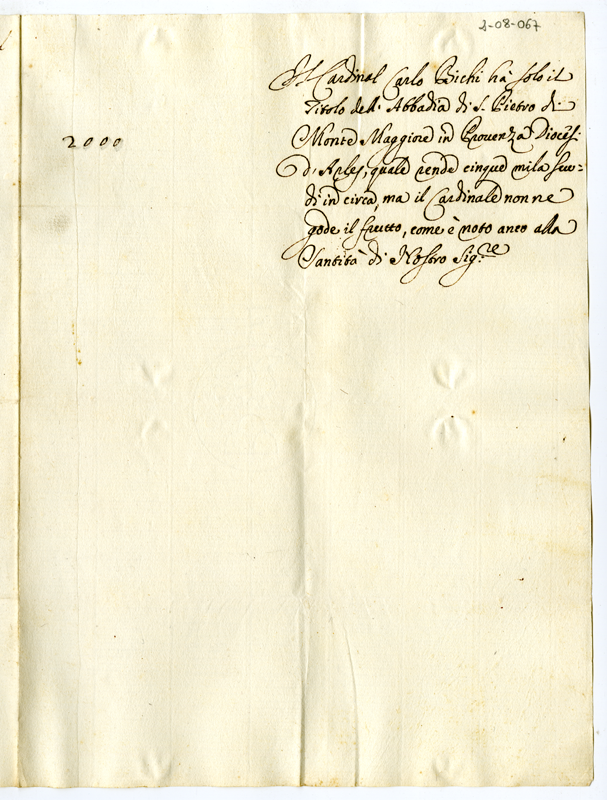 2-08-067
Il Cardinal Carlo Bichi hà solo il
Titolo dell' Abbadia di S. Pietro di
2000
Monte Maggiore in Prouenza Diocesi
d'Arles, quale rende cinque mila scu=
di in circa, ma il Cardinale non ne
gode il frutto, come è noto anco alla
Santità di Nostro Sig.re